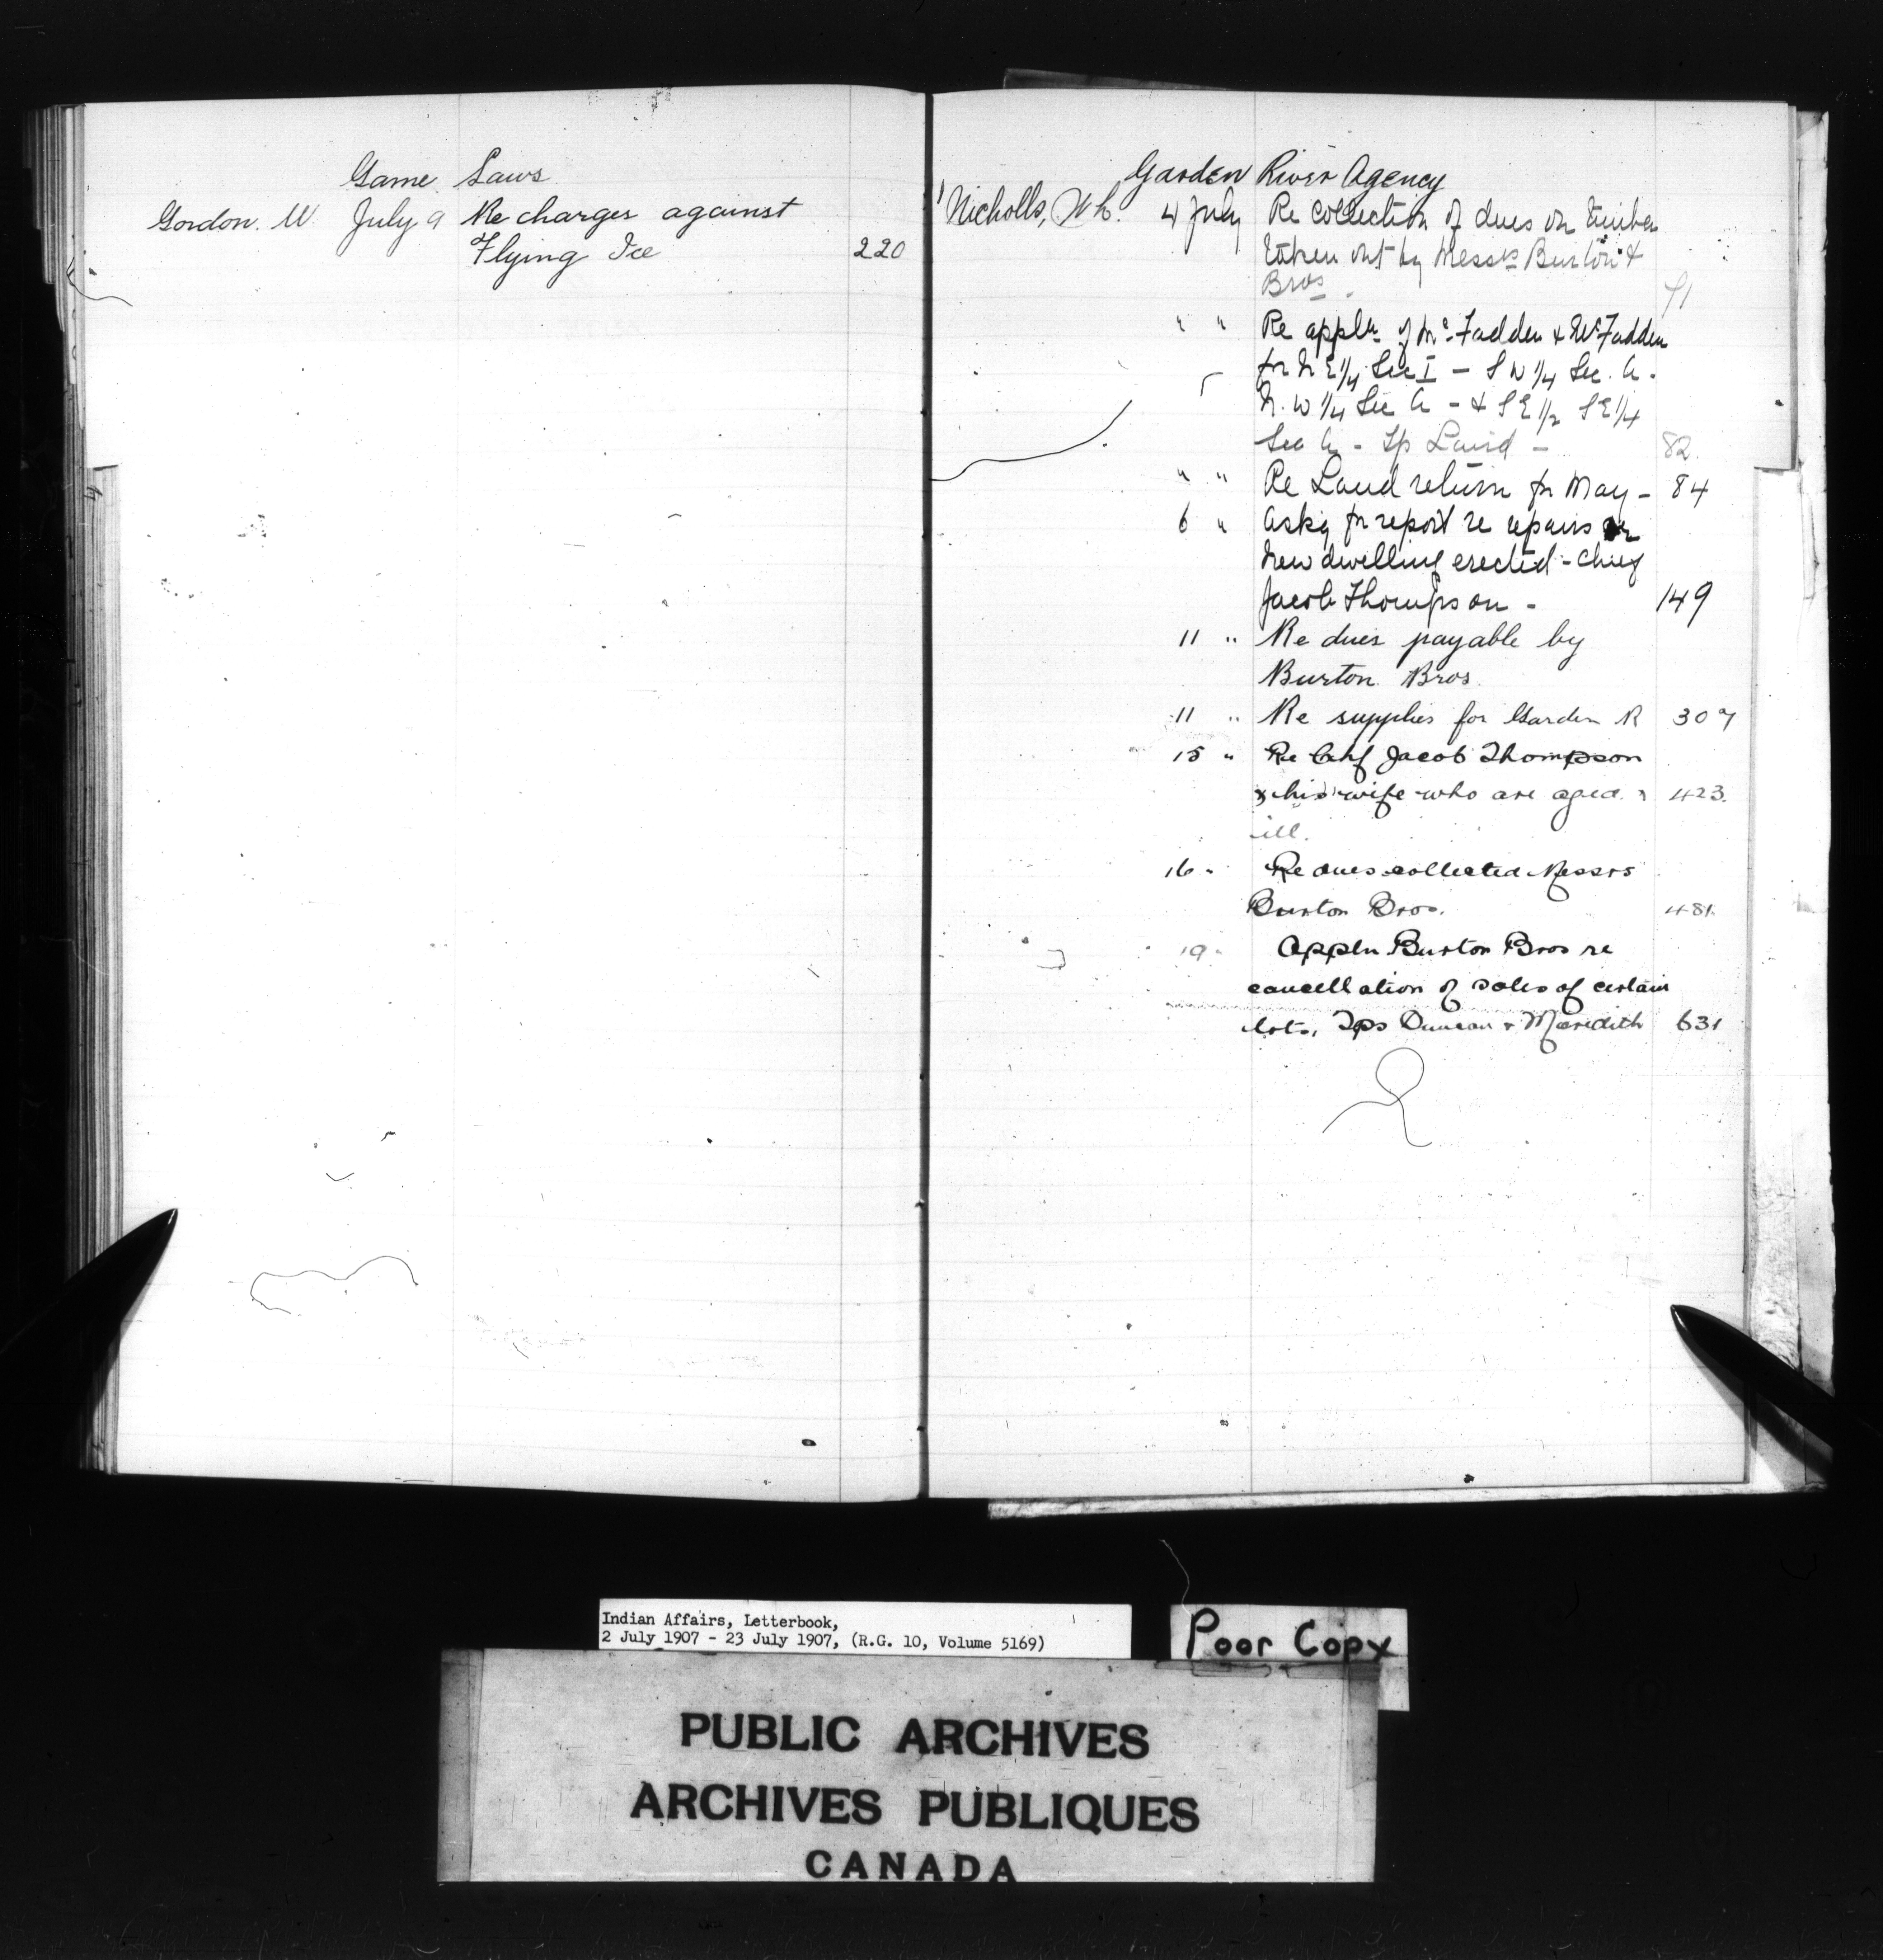 Game Laws
Gordon. W. July 9 Re charges against
Flying Ice 220
Garden River Agency
Nicholls, Wm. 4 July Re collection of dues on timber
taken out by Messrs Burton &
Bros. 71
" " Re appln of McFadden & McFadden
for N E 1/4 Sec I - S W 1/4 Sec. A.
N. W 1/4 Sec A - & S E 1/2 S E 1/4
Sec A - Tp Laird - 82
" " Re Land return for May - 84
6 " Askg for report re repairs or
new dwelling erected - Chief
Jacob Thompson - 149
11 " Re dues payable by
Burton Bros.
11 " Re supplies for Garden R 307
15 " Re Chf Jacob Thompson
& his wife who are aged & 423.
ill.
16 " Re dues collected Messrs
Burton Bros. 481.
19 " Appln Burton Bros re
cancellation of sales of certain
lots, Tps Duncan & Meredith 631
Indian Affairs, Letterbook,
2 July 1907 - 23 July 1907, (R.G. 10, Volume 5169)
Poor Copy
PUBLIC ARCHIVES
ARCHIVES PUBLIQUES
CANADA